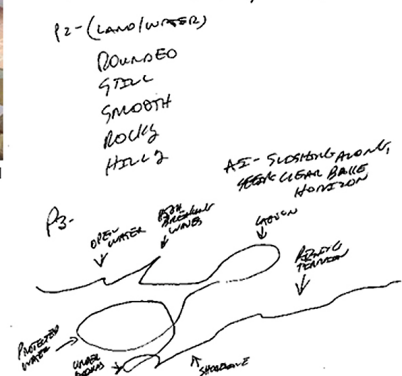 P2-(LAND/WATER)
ROUNDED
STILL
SMOOTH
ROCKY
HILLY
AI- SLOSHING ALONG,
CLEAR
HORIZON
P3-
OPEN
WATER
BREAKING
WAVES
LAGOON
RISING
TERRAIN
PROTECTED
WATER
UNDER
SHORELINE